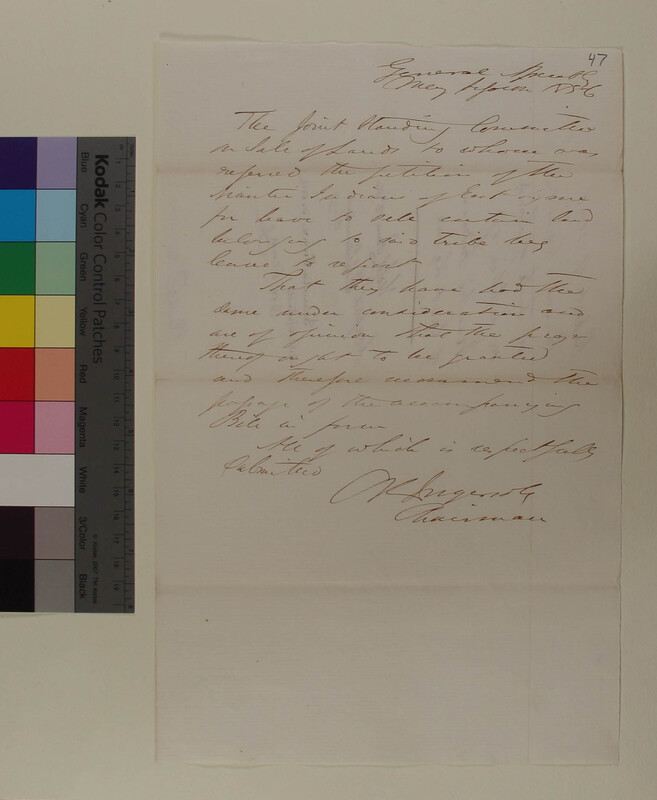 47
General Assembly
May Session 1856
The Joint Standing Committee
on Sale of Lands to whom was
referred the petition of the
Niantic Indians of East Lyme
for leave to sell certain land
belonging to said tribe beg
leave to report
That they have had the
same under consideration and
are of opinion that the prayer
thereof ought to be granted
and therefore recommend the
passage of the accompanying
Bill in form
All of which is respectfully
Submitted
Ingersoll
Chairman
Kodak
Color Control Patches
Blue
Cyan
Green
Yellow
Red
Magenta
White
3/Color
Black